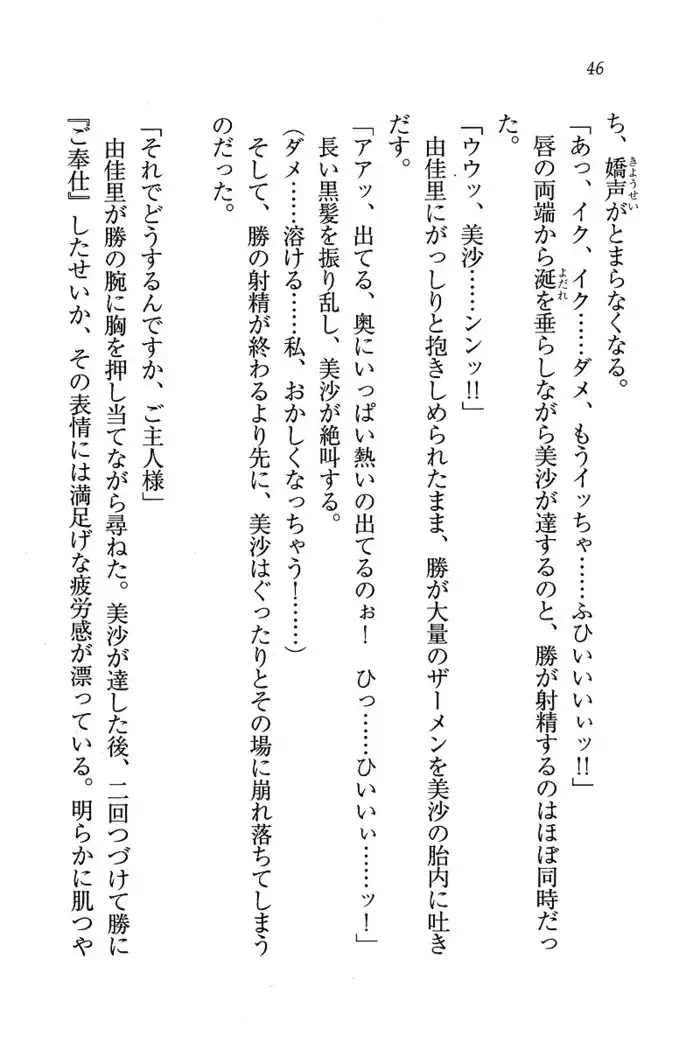 46
ち、嬌声がとまらなくなる。
「あっ、イク、イク……ダメ、もうイッちゃ……ふひいいいぃッ!!」
唇の両端から涎を垂らしながら美沙が達するのと、勝が射精するのはほぼ同時だっ
た。
「ウウッ、美沙……ンンッ!!」
由佳里にがっしりと抱きしめられたまま、勝が大量のザーメンを美沙の胎内に吐き
だす。
「アアッ、出てる、奥にいっぱい熱いの出てるのぉ！　ひっ……ひいいぃ……ッ！」
長い黒髪を振り乱し、美沙が絶叫する。
(ダメ……溶ける……私、おかしくなっちゃう！………)
そして、勝の射精が終わるより先に、美沙はぐったりとその場に崩れ落ちてしまう
のだった。
「それでどうするんですか、ご主人様」
由佳里が勝の腕に胸を押し当てながら尋ねた。美沙が達した後、二回つづけて勝に
『ご奉仕』したせいか、その表情には満足げな疲労感が漂っている。明らかに肌つや